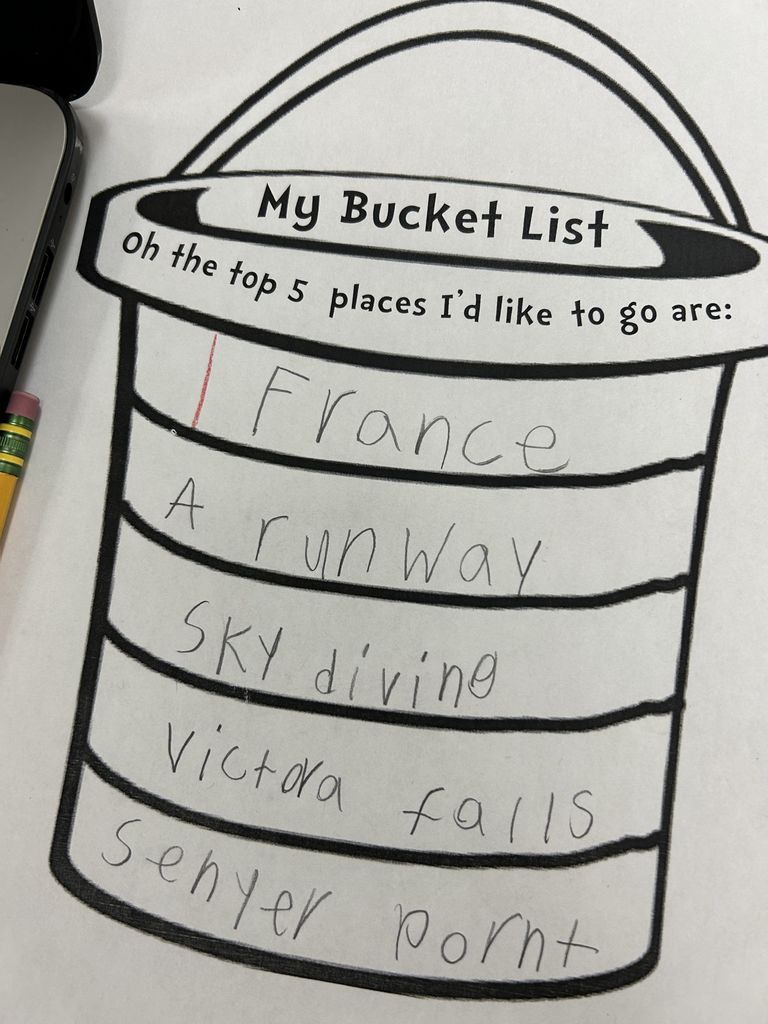 My Bucket List
Oh the top 5 places I'd like to go are:
France
A runway
SKY diving
Victora falls
Senyer pornt